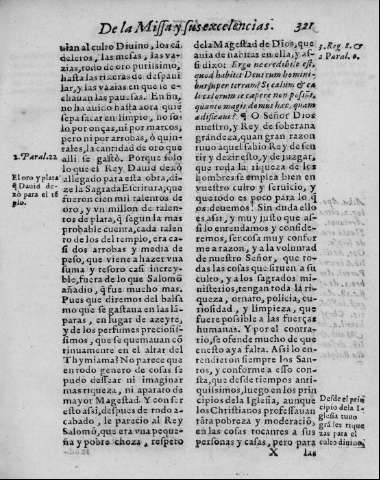 De la Missa y sus excelencias. 321
uian al culto Diuino, los cã
deleros, las mesas, las va-
zias, todo de oro purissimo,
hasta las tixeras de despaui
lar, y las vazias en que se e-
chauan las pauesas. En fin,
no ha auido hasta aora quiẽ
sepa sacar en limpio, no so-
lo por onças, ni por marcos,
pero ni por arrobas, ò quin-
tales, la cantidad de oro que
alli se gastò. Porque solo
lo que el Rey Dauid dexò
allegado para esta obra, di-
ze la Sagrada Escritura, que
fueron cien mil talentos de
oro, y vn millon de talen-
tos de plata, q̃ segun la mas
probable cuenta, cada talen
to de los del templo, era ca-
si dos arrobas y media de
peso, que viene a hazer vna
suma y tesoro casi increy-
ble, fuera de lo que Salomõ
añadio, q̃ fue mucho mas.
Pues que diremos del balsa
mo que se gastaua en las lã-
paras, en lugar de azeyte,
y de los perfumes preciosis-
simos, que se quemauan cõ
tinuamente en el altar del
Thymiama? No parece que
en todo genero de cosas se
pudo dessear ni imaginar
mas riqueza, ni aparato de
mayor Magestad. Y con ser
esto assi, despues de todo a-
cabado, le pareció al Rey
Salomõ, que era vna peque-
ña y pobre choza, respeto
2. Paral. 22
El oro y plata
q̃ Dauid de-
xò para el tẽ
plo.
de la Magestad de Dios, que
auia de habitar en ella, y as-
si dixo: Ergo ne credibile est,
quod habitet Deus cum homini-
bus super terram? Si cælum & cæ
li cælorum te capere non possũt,
quanto magis domus hæc, quam
ædificaui? ¶ O Señor Dios
nuestro, y Rey de soberana
grandeza, quan gran razon
tuuo aquel sabio Rey de sen
tir y dezir esto, y de juzgar,
que toda la riqueza de los
hombres se emplea bien en
vuestro culto y seruicio, y
que todo es poco para lo q̃
os deuemos! Sin duda ello
es assi, y muy justo que as-
si lo entendamos y conside-
remos, ser cosa muy confor
me a razon, y a la voluntad
de nuestro Señor, que to-
das las cosas que siruen a su
culto, y a los sagrados mi-
nisterios, tengan toda la ri-
queza, ornato, policia, cu-
riosidad, y limpieza, que
fuere possible a las fuerças
humanas. Y por el contra-
rio, se ofende mucho de que
en esto aya falta. Assi lo en-
tendieron siempre los San-
tos, y conforme a esto con-
sta, que desde tiempos anti-
quissimos, luego en los prin
cipios de la Iglesia, aunque
los Christianos professauan
tãta pobreza y moderaciõ,
en las cosas tocantes a sus
personas y casas, pero para
3. Reg. 8. &
2 Paral. 6.
Desde el prin
cipio de la I-
glesia tuuo
grãdes rique
zas para el
culto diuino.
X las